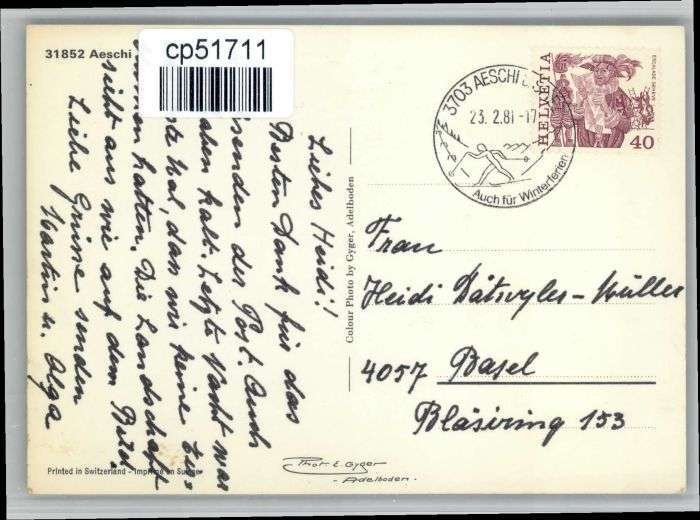 31852 Aeschi
cp51711
Liebes Heidi!
Besten Dank für das
senden der Post. Auch
kalt. Letzte Nacht war
Mal, dass wir keine Eis
hatten. Die Landschaft
sieht aus wie auf dem Bild.
Liebe Grüsse senden
Martin u. Olga
Colour Photo by Gyger, Adelboden
3703 AESCHI
23. 2.81 -17
Auch für Winterferien
HELVETIA
ESCALADE GENEVE
40
Frau
Heidi Dätwyler-Müller
4057 Basel
Bläsiring 153
Printed in Switzerland - Imprimé en Suisse
Phot. E. Gyger
- Adelboden -